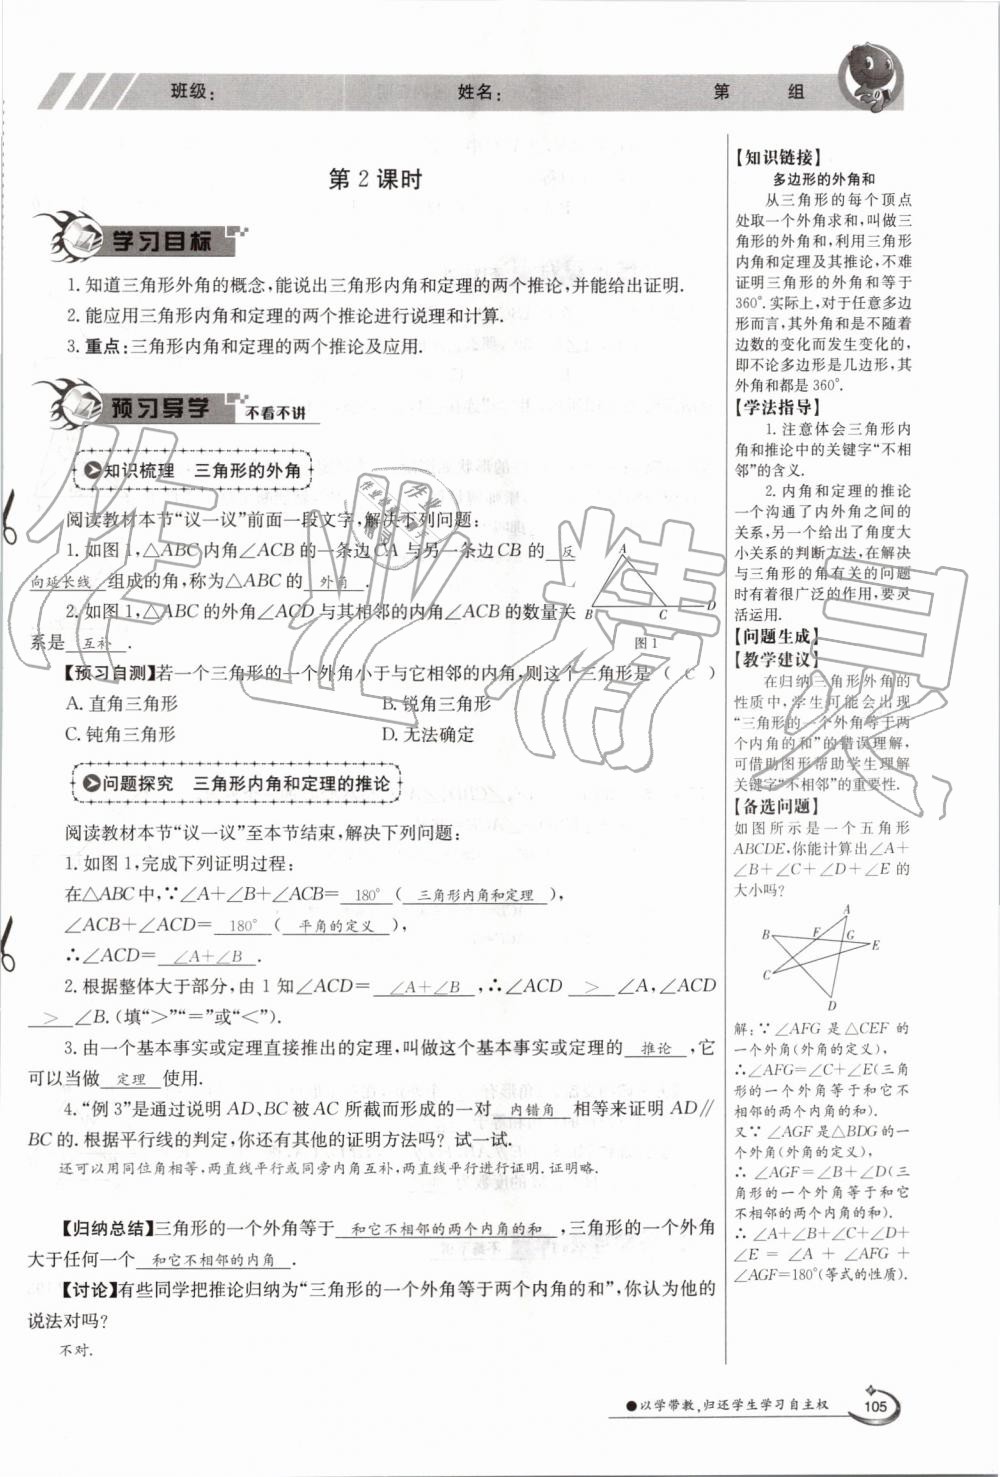 班级：
姓名：
第 组
第 2 课时
学习目标
1. 知道三角形外角的概念,能说出三角形内角和定理的两个推论,并能给出证明.
2. 能应用三角形内角和定理的两个推论进行说理和计算.
3. 重点:三角形内角和定理的两个推论及应用.
预习导学 不看不讲
知识梳理 三角形的外角
阅读教材本节“议一议”前面一段文字,解决下列问题:
1. 如图 1,△ABC 内角∠ACB 的一条边 CA 与另一条边 CB 的 反
向延长线 组成的角,称为△ABC 的 外角 .
2. 如图 1,△ABC 的外角∠ACD 与其相邻的内角∠ACB 的数量关
系是 互补 .
A
B C D
图 1
【预习自测】若一个三角形的一个外角小于与它相邻的内角,则这个三角形是 ( C )
A. 直角三角形 B. 锐角三角形
C. 钝角三角形 D. 无法确定
问题探究 三角形内角和定理的推论
阅读教材本节“议一议”至本节结束,解决下列问题:
1. 如图 1,完成下列证明过程:
在△ABC 中,∵∠A+∠B+∠ACB= 180° ( 三角形内角和定理 ),
∠ACB+∠ACD= 180° ( 平角的定义 ),
∴∠ACD= ∠A+∠B .
2. 根据整体大于部分,由 1 知∠ACD= ∠A+∠B ,∴∠ACD > ∠A,∠ACD
> ∠B. (填“>”“=”或“<”).
3. 由一个基本事实或定理直接推出的定理,叫做这个基本事实或定理的 推论 ,它
可以当做 定理 使用.
4. “例 3”是通过说明 AD、BC 被 AC 所截而形成的一对 内错角 相等来证明 AD∥
BC 的. 根据平行线的判定,你还有其他的证明方法吗? 试一试.
还可以用同位角相等,两直线平行或同旁内角互补,两直线平行进行证明.证明略.
【归纳总结】三角形的一个外角等于 和它不相邻的两个内角的和 ,三角形的一个外角
大于任何一个 和它不相邻的内角 .
【讨论】有些同学把推论归纳为“三角形的一个外角等于两个内角的和”,你认为他的
说法对吗?
不对.
【知识链接】
多边形的外角和
从三角形的每个顶点
处取一个外角求和,叫做三
角形的外角和,利用三角形
内角和定理及其推论,不难
证明三角形的外角和等于
360°.实际上,对于任意多边
形而言,其外角和是不随着
边数的变化而发生变化的,
即不论多边形是几边形,其
外角和都是 360°.
【学法指导】
1. 注意体会三角形内
角和推论中的关键字“不相
邻”的含义.
2. 内角和定理的推论
一个沟通了内外角之间的
关系,另一个给出了角度大
小关系的判断方法,在解决
与三角形的角有关的问题
时有着很广泛的作用,要灵
活运用.
【问题生成】
【教学建议】
在归纳三角形外角的
性质中,学生可能会出现
“三角形的一个外角等于两
个内角的和”的错误理解,
可借助图形帮助学生理解
关键字“不相邻”的重要性.
【备选问题】
如图所示是一个五角形
ABCDE,你能计算出∠A+
∠B+∠C+∠D+∠E 的
大小吗?
A
B F G E
C
D
解:∵∠AFG 是△CEF 的
一个外角(外角的定义),
∴∠AFG=∠C+∠E(三角
形的一个外角等于和它不
相邻的两个内角的和).
又∵∠AGF 是△BDG 的一
个外角(外角的定义),
∴∠AGF=∠B+∠D(三
角形的一个外角等于和它
不相邻的两个内角的和).
∴∠A+∠B+∠C+∠D+
∠E = ∠A + ∠AFG +
∠AGF=180°(等式的性质).
●以学带教,归还学生学习自主权
105
作业精灵